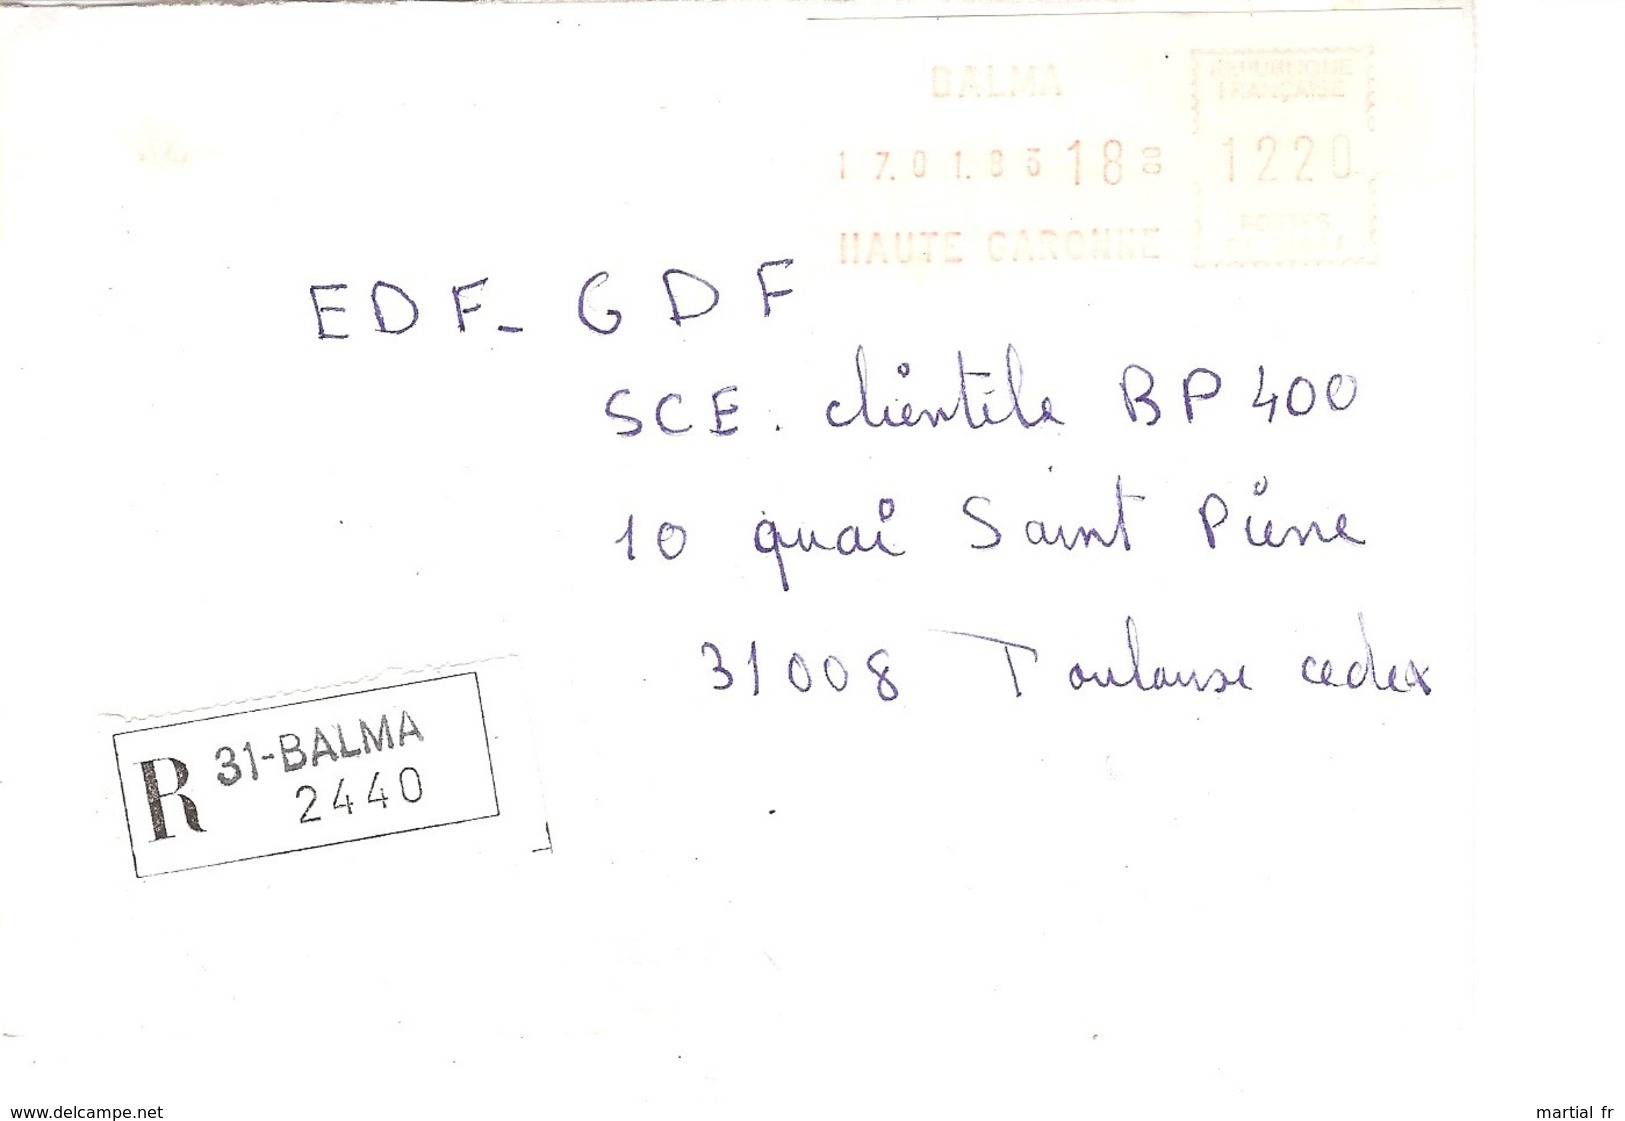 BALMA
REPUBLIQUE
FRANÇAISE
17.01.85 18 00
1220
HAUTE GARONNE
POSTES
EDF-GDF
SCE. clientèle BP 400
10 quai Saint Pierre
31008 Toulouse cedex
R 31-BALMA
2440
www.delcampe.net
martial fr